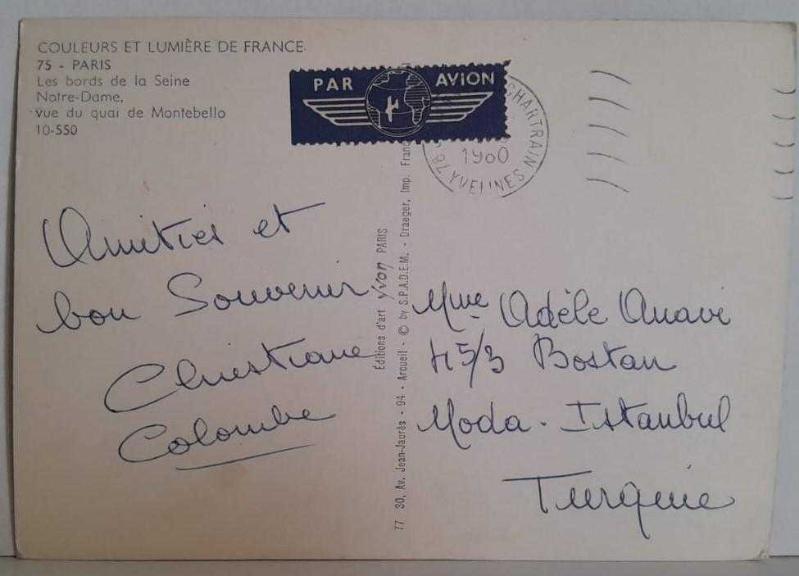 COULEURS ET LUMIÈRE DE FRANCE
75 - PARIS
Les bords de la Seine
Notre-Dame,
vue du quai de Montebello
10-550
PAR AVION
CHARTRAIN
1980
78 YVELINES
Amitiés et
bon Souvenir
Christiane
Colombe
Editions d'art yvon PARIS
77 30, Av. Jean-Jaurès - 94 - Arcueil - © by S.P.A.D.E.M. - Draeger, Imp. Franc
Mme Adèle Anavi
45/3 Bostan
Moda - Istanbul
Turquie